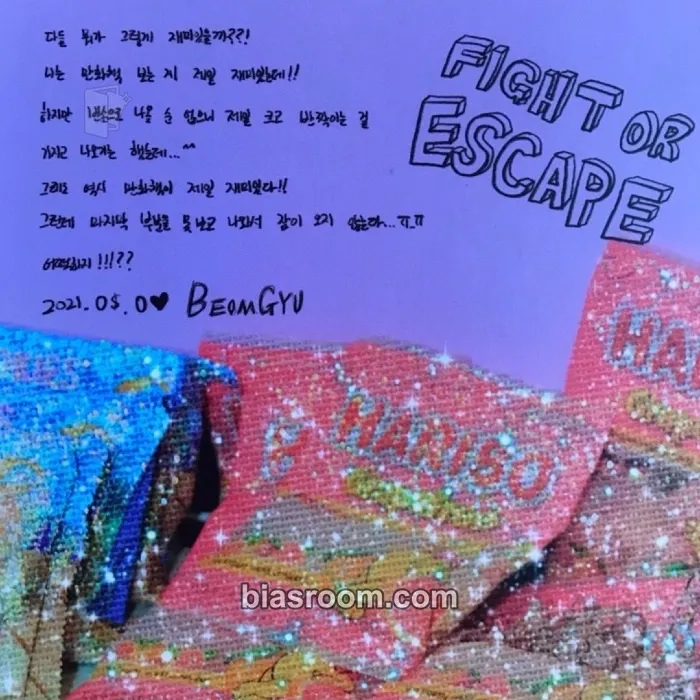 다들 뭐가 그렇게 재미있을까??!
나는 만화책 보는 게 제일 재미있는데!!
하지만 나올 순 없으니 제일 크고 반짝이는 걸
가지고 나오기는 했는데...^^
그래도 역시 만화책이 제일 재미있다!!
그런데 마지막 부분을 못 보고 나와서 잠이 오지 않는다...ㅠ_ㅠ
어떡하지!!!??
2021.05.0♥ BEOMGYU
FIGHT OR
ESCAPE
HARIBO
HA
biasroom.com